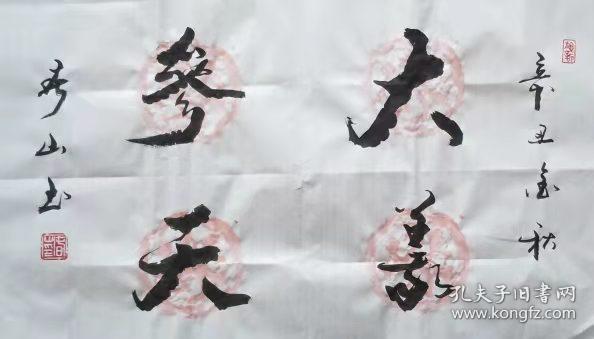 辛丑金秋
大善
參天
秀山书
孔夫子旧书网
www.kongfz.com